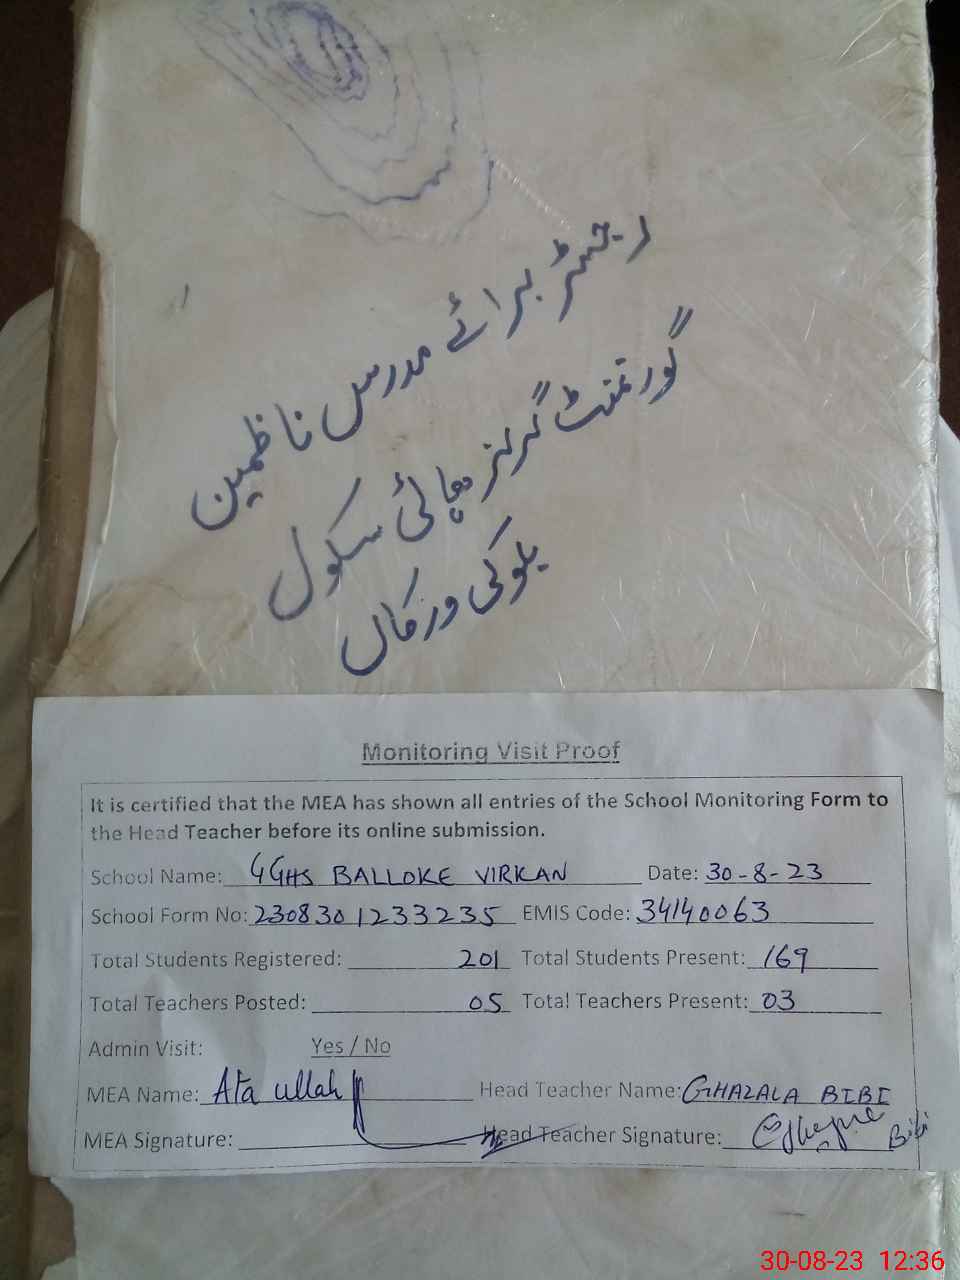 رجسٹر برائے مدرس ناظمین
گورنمنٹ گرلز ہائی سکول
بلوکی ورکاں
Monitoring Visit Proof
It is certified that the MEA has shown all entries of the School Monitoring Form to
the Head Teacher before its online submission.
School Name: GGHS BALLOKE VIRKAN Date: 30-8-23
School Form No: 2308301233235 EMIS Code: 34140063
Total Students Registered: 201 Total Students Present: 169
Total Teachers Posted: 05 Total Teachers Present: 03
Admin Visit: Yes / No
MEA Name: Ata ullah Head Teacher Name: GHAZALA BIBI
MEA Signature: Head Teacher Signature: Bibi
30-08-23 12:36